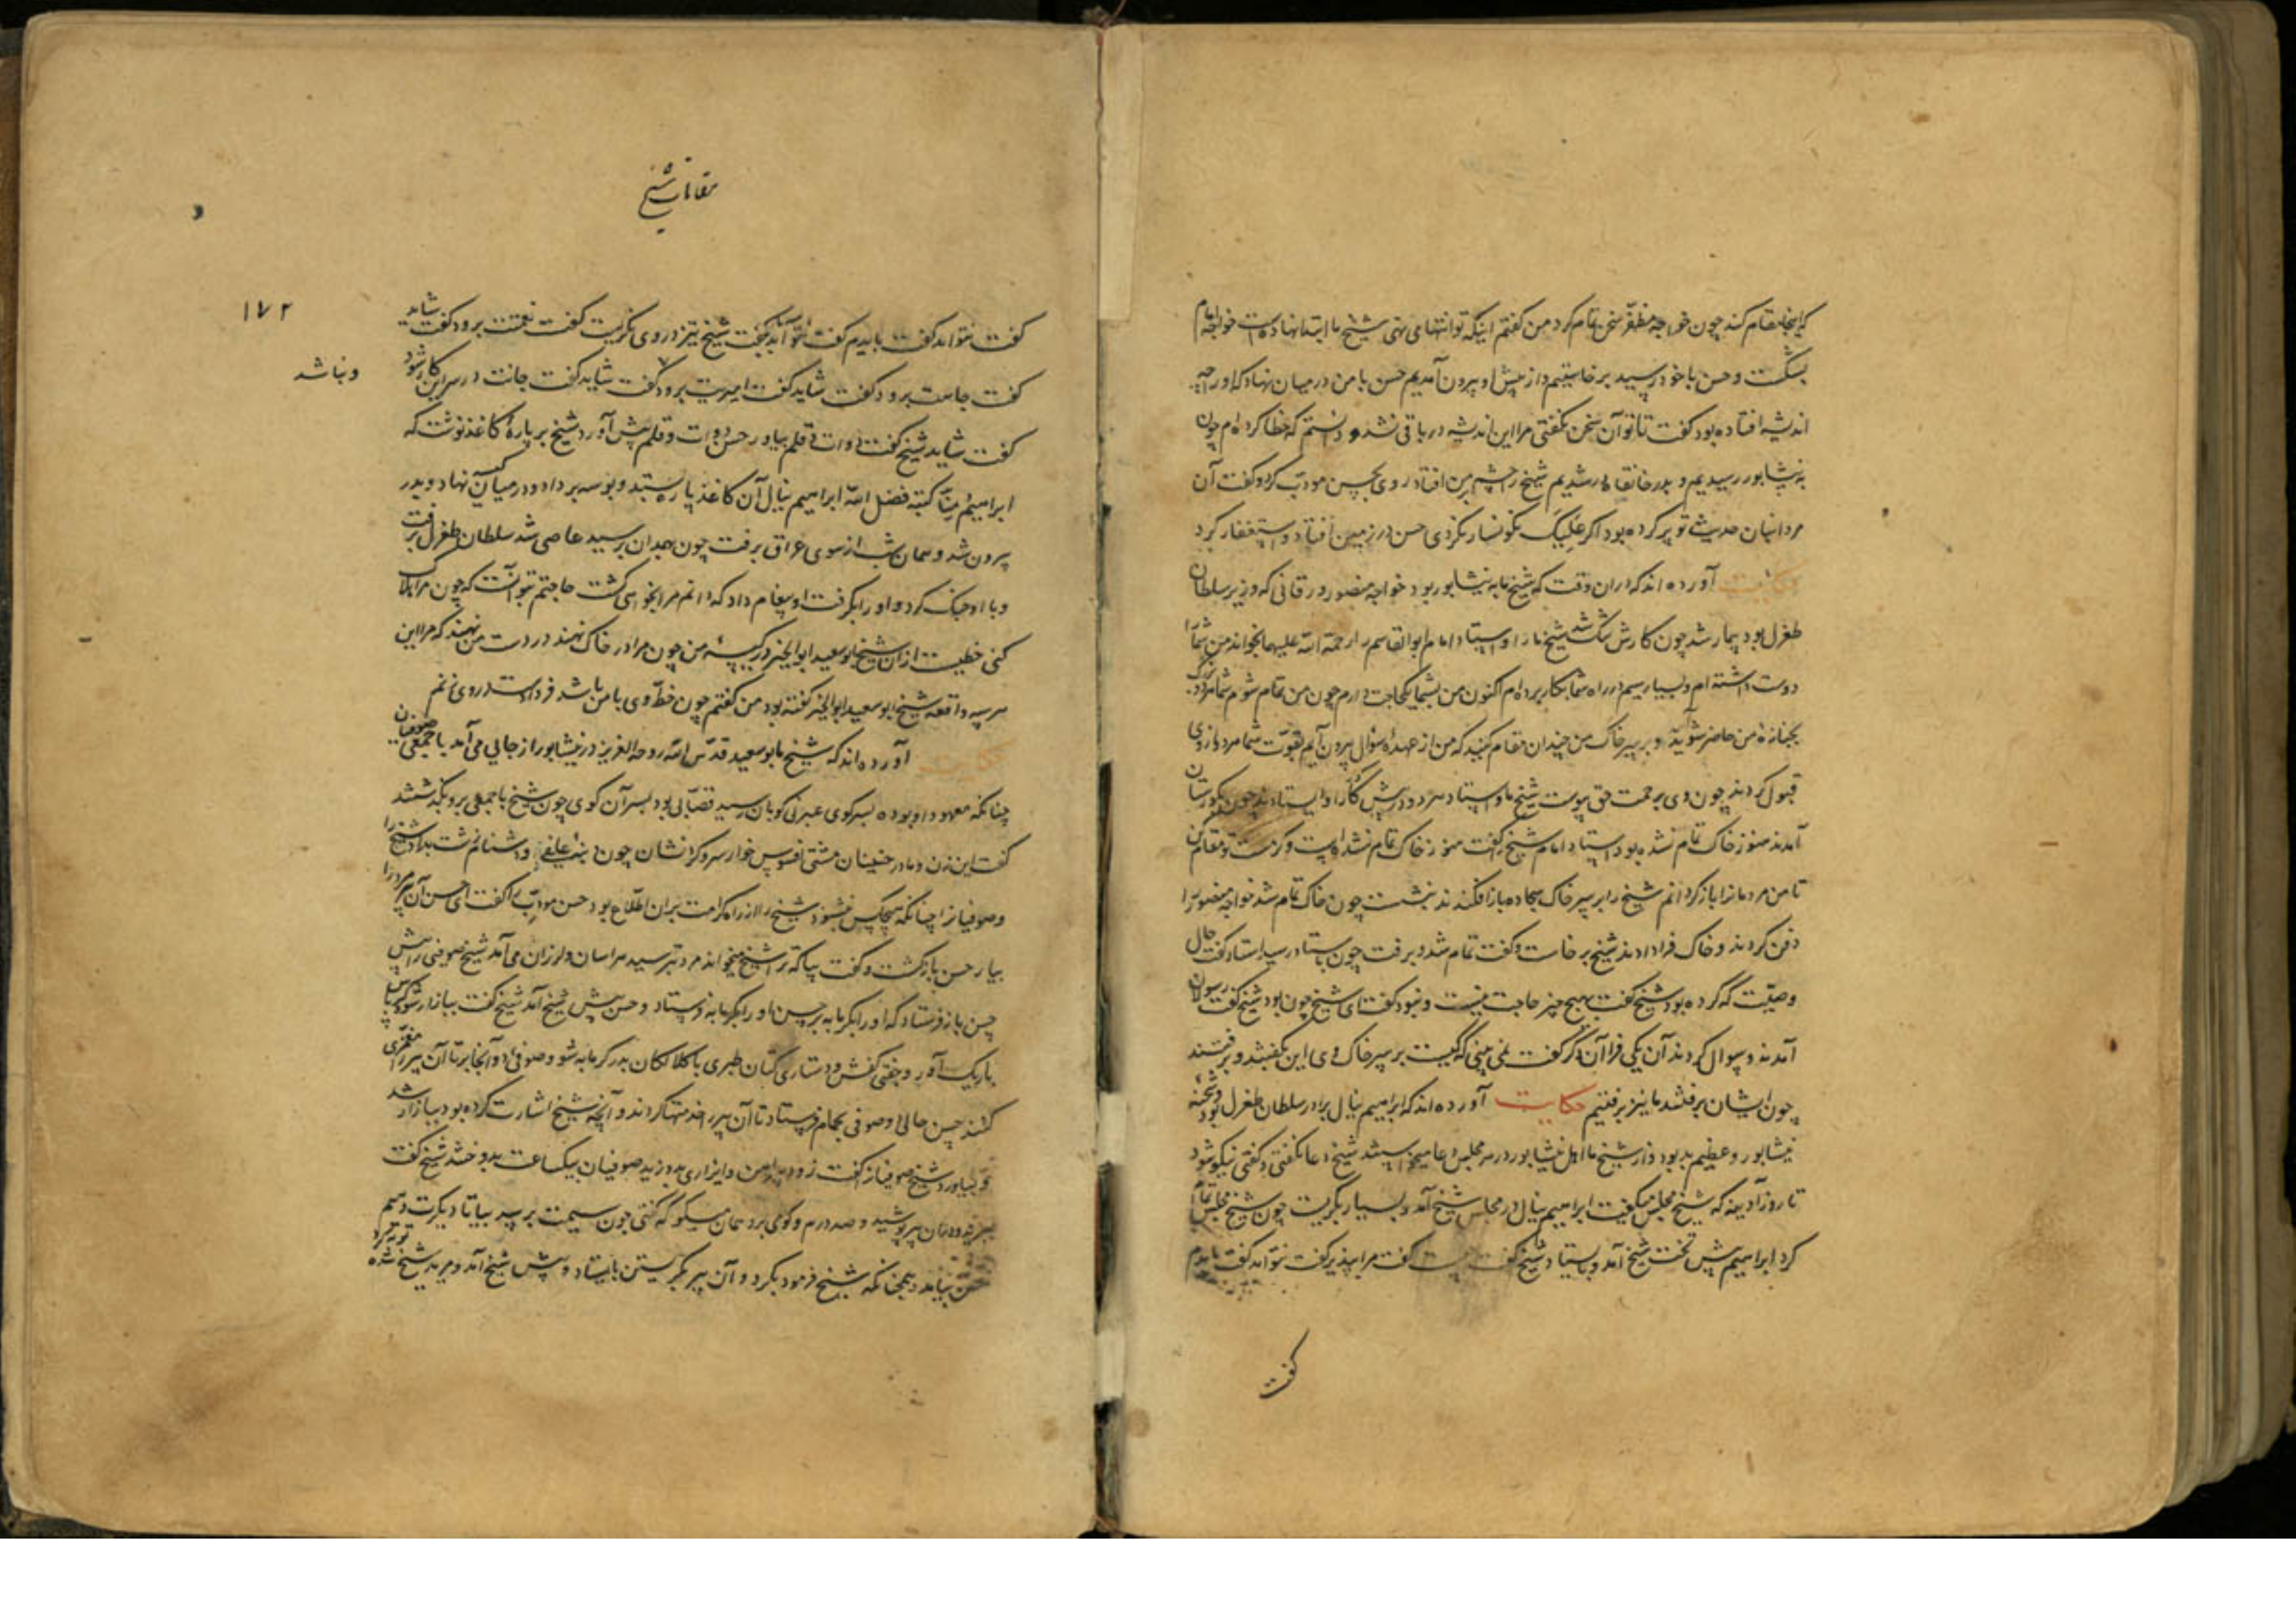 که اینجا مقام کند چون خواجه مظفر سخن تمام کرد من گفتم اینکه تو انتها می نهی شیخ ما ابتدا نهاده است خواجه امام
بشکست و حسن با خود رسید برخاستیم و از پیش او بیرون آمدیم حسن با من در میان نهاد که او را چه
اندیشه افتاده بود گفت تا تو آن سخن نگفتی مرا این اندیشه در باقی نشد و دانستم که خطا کرده ام چون
به نیشابور رسیدیم و بدر خانقاه در شدیم شیخ را چشم بر من افتاد روی بحسن مودب کرد و گفت آن
مرد انبان حدیث تو پر کرده بود اگر علیک نکونسار نکردی حسن در زمین افتاد و استغفار کرد
حکایت آورده اند که در آن وقت که شیخ ما به نیشابور بود خواجه منصور ورقانی که وزیر سلطان
طغرل بود بیمار شد چون کارش تنگ شد شیخ ما را و استاد امام ابوالقاسم را رحمة الله علیهما بخواند من شما را
دوست داشته ام و بسیار سیم در راه شما بکار برده ام اکنون من بشما یک حاجت دارم چون من تمام شوم شما هر دو بزرگ
بجنازه من حاضر شوید و بر سر خاک من چندان مقام کنید که من از عهده سؤال بیرون آیم بقوت شما هر دو از وی
قبول کردند چون وی برحمت حق پیوست شیخ ما و استاد هر دو در پیش کار او ایستادند چون بگورستان
آمدند هنوز خاک تمام نشده بود استاد امام شیخ را گفت هنوز خاک تمام نشده است و گرمست تو مقام کن
تا من مردمان را باز گردانم شیخ را بر سر خاک سجاده باز افکندند بنشست چون خاک تمام شد خواجه منصور را
دفن کردند و خاک فرا دادند شیخ برخاست و گفت تمام شد و برفت چون باستاد رسید استاد گفت حال
وصیت که کرده بود شیخ گفت بهیچ چیز حاجت نیست و نبود گفت ای شیخ چون بود شیخ گفت رسولان
آمدند و سوال کردند آن یکی فرا آن دگر گفت نمی بینی که کیست بر سر خاک وی این بگفتند و برفتند
چون ایشان برفتند ما نیز برفتیم حکایت آورده اند که ابراهیم ینال برادر سلطان طغرل بود و شحنه
نیشابور و عظیم بد بود و از شیخ ما اهل نیشابور در هر مجلس دعا میخواستند شیخ دعا نگفتی و گفتی نیکو شود
تا روز آدینه که شیخ مجلس میگفت ابراهیم ینال در مجلس شیخ آمد و بسیار بگریست چون شیخ مجلس تمام
کرد ابراهیم پیش تخت شیخ آمد و بایستاد شیخ گفت چیست گفت مرا بپذیر گفت نتواند گفت بایدم
گفت
مقامات شیخ
۱۷۲
گفت نتواند گفت بایدم گفت نتواند گفت شیخ تیز در وی نگریست گفت نعمتت برود گفت شاید
گفت جاهت برود گفت شاید گفت امیریت برود و نباشد گفت شاید گفت جانت در سر این کار شود
گفت شاید شیخ گفت دوات و قلم بیاور حسن دوات و قلم پیش آورد شیخ بر پاره کاغذ نوشت که
ابراهیم منا کتبه فضل الله ابراهیم ینال آن کاغذ پاره بستد و بوسه بر داد و در میان کیسه نهاد و بدر
بیرون شد و همان شب از سوی عراق برفت چون بهمدان برسید عاصی شد سلطان طغرل برفت
و با او جنگ کرد و او را بگرفت او پیغام داد که دانم مرا بخواهی کشت حاجتم بتو آنست که چون مرا هلاک
کنی خطیست از آن شیخ ابوسعید ابوالخیر در کیسه من چون مرا در خاک نهند در دست من نهند که مرا این
سر سیه واقعه شیخ ابوسعید ابوالخیر گفته بود من گفتم چون خط وی با من باشد فردا دست در وی زنم
حکایت آورده اند که شیخ ما ابوسعید قدس الله روحه العزیز در نیشابور از جایی می آمد با جمعی صوفیان
چنانکه معهود او بوده بسر کوی عبرنی کوبان رسید قصابی بود بسر آن کوی چون شیخ با جمعی برو بگذشتند
گفت این زن و مادر چنینان مشتی افسوس خوار سر و گردنشان چون دنبه علفی و دشنام زشت بداد شیخ را
و صوفیان را چنانکه هیچکس نشنود شیخ را از راه کرامت بر آن اطلاع بود حسن مودب را گفت ای حسن آن پیر مرد را
بیار حسن بازگشت و گفت بیا که ترا شیخ میخواند مرد بترسید هراسان و لرزان می آمد شیخ صوفی را پیش
حسن باز فرستاد که او را بگرمابه بر حسن او را بگرمابه فرستاد و حسن پیش شیخ آمد شیخ گفت ببازار شو کرباس
باریک آور و جفتی کفش و دستاری کتان طبری با کلالکان بدر گرمابه شو و صوفیی دو آنجا بر تا آن پیر را مغمزی
کنند حسن حالی دو صوفی بحمام فرستاد تا آن پیر را خدمتها کردند و آنچه شیخ اشارت کرده بود ببازار شد
و بیاورد شیخ صوفیان را گفت زود پیراهن و ایزاری بدوزید صوفیان بیکساعت بدوختند شیخ گفت
ببرید و در آن پیر پوشید و صد درم و گو می برد همان میگو که گفتی چون سیمت برسید بیا تا دیگرت دهیم
حسن بیامد و همچنانکه شیخ فرمود بکرد و آن پیر بگریستن بایستاد و پیش شیخ آمد و توبه کرد و مرید شیخ شد